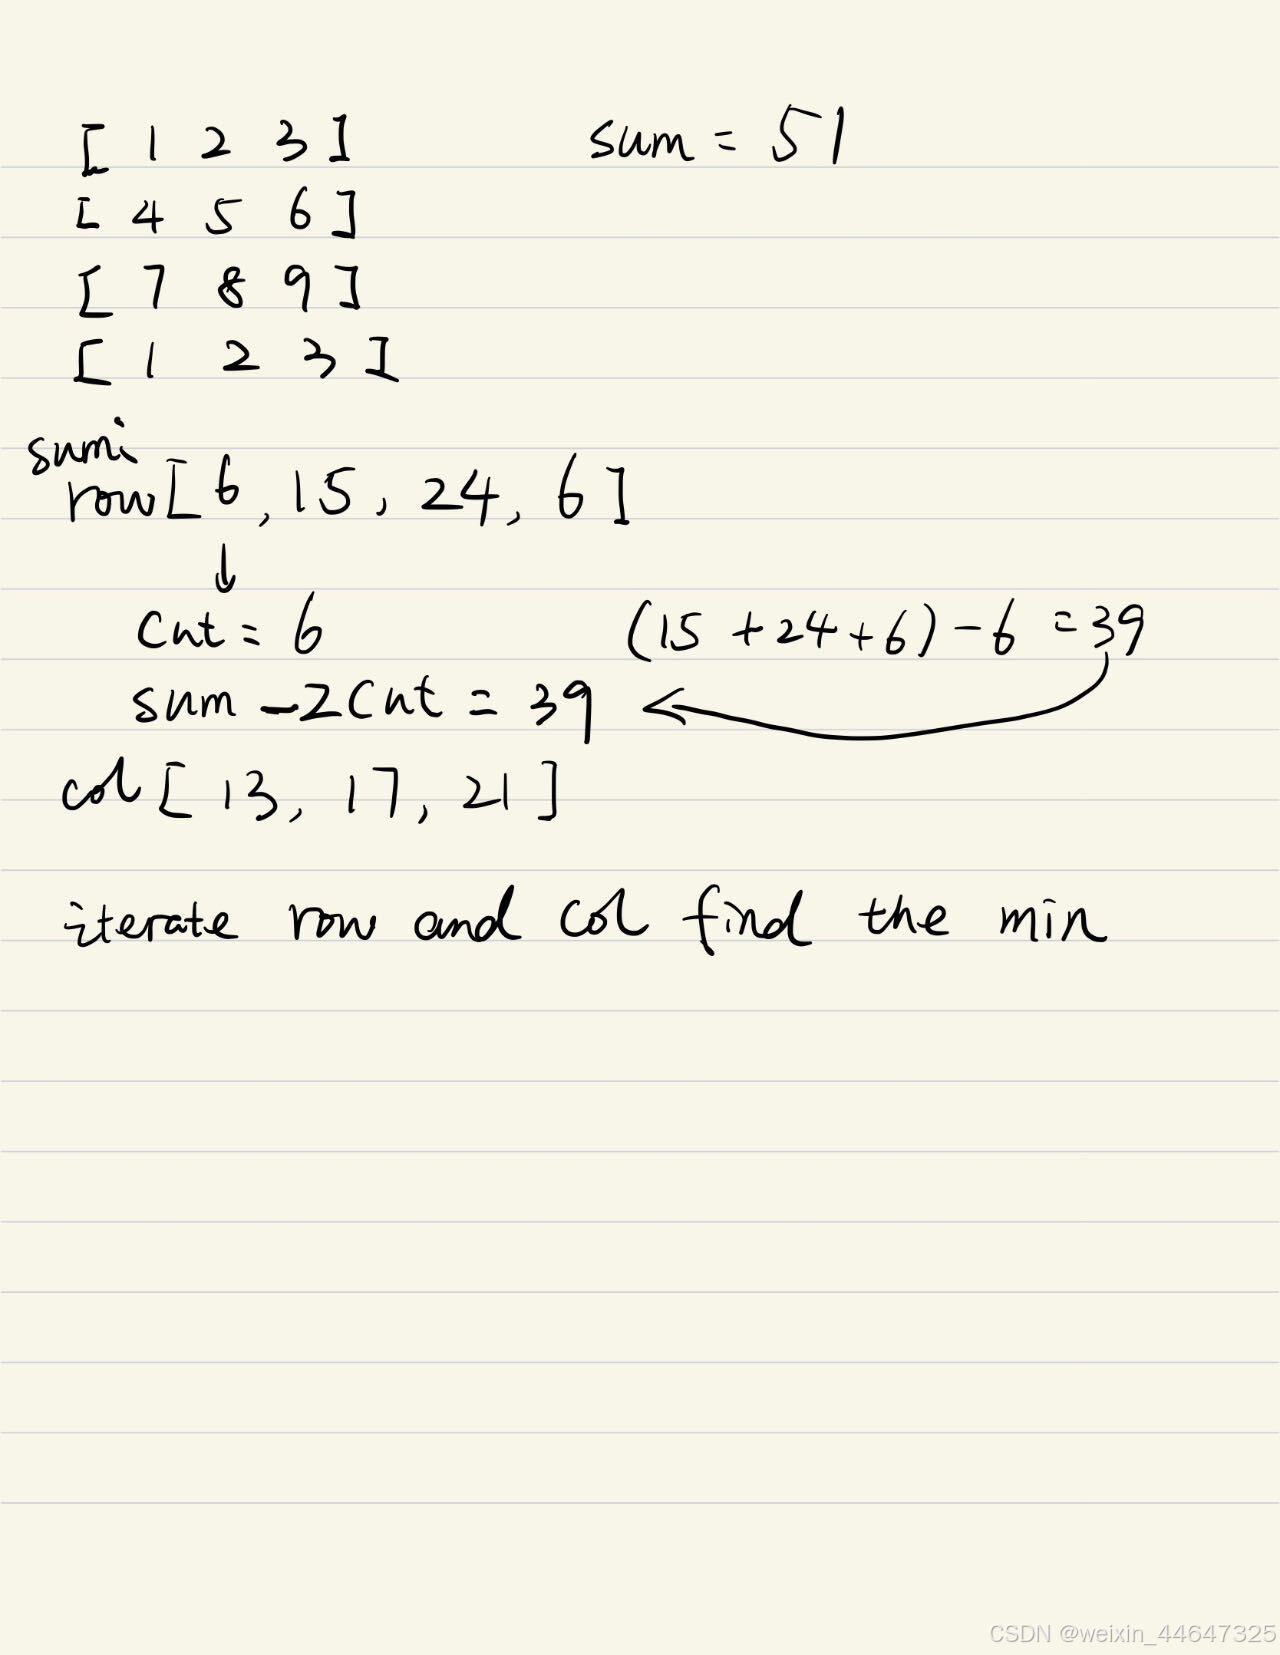 [ 1 2 3 ] sum = 51
[ 4 5 6 ]
[ 7 8 9 ]
[ 1 2 3 ]
sumi
row [ 6 , 15 , 24 , 6 ]
↓
Cnt = 6 (15 + 24 + 6) - 6 = 39
sum - 2Cnt = 39 ←
col [ 13, 17, 21 ]
iterate row and col find the min
CSDN @weixin_44647325